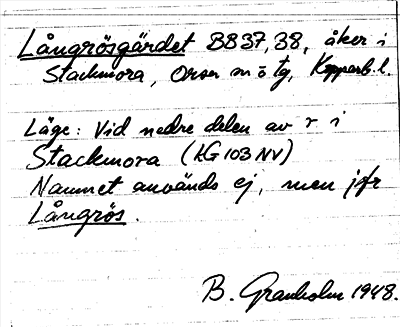 Långrösgärdet BB37,38, åker i
Stackmora, Orsa sn o tg, Kopparb. l.
Läge: Vid nedre delen av r i
Stackmora (KG 103 NV)
Namnet används ej, men jfr
Långrös.
B. Granholm 1948.